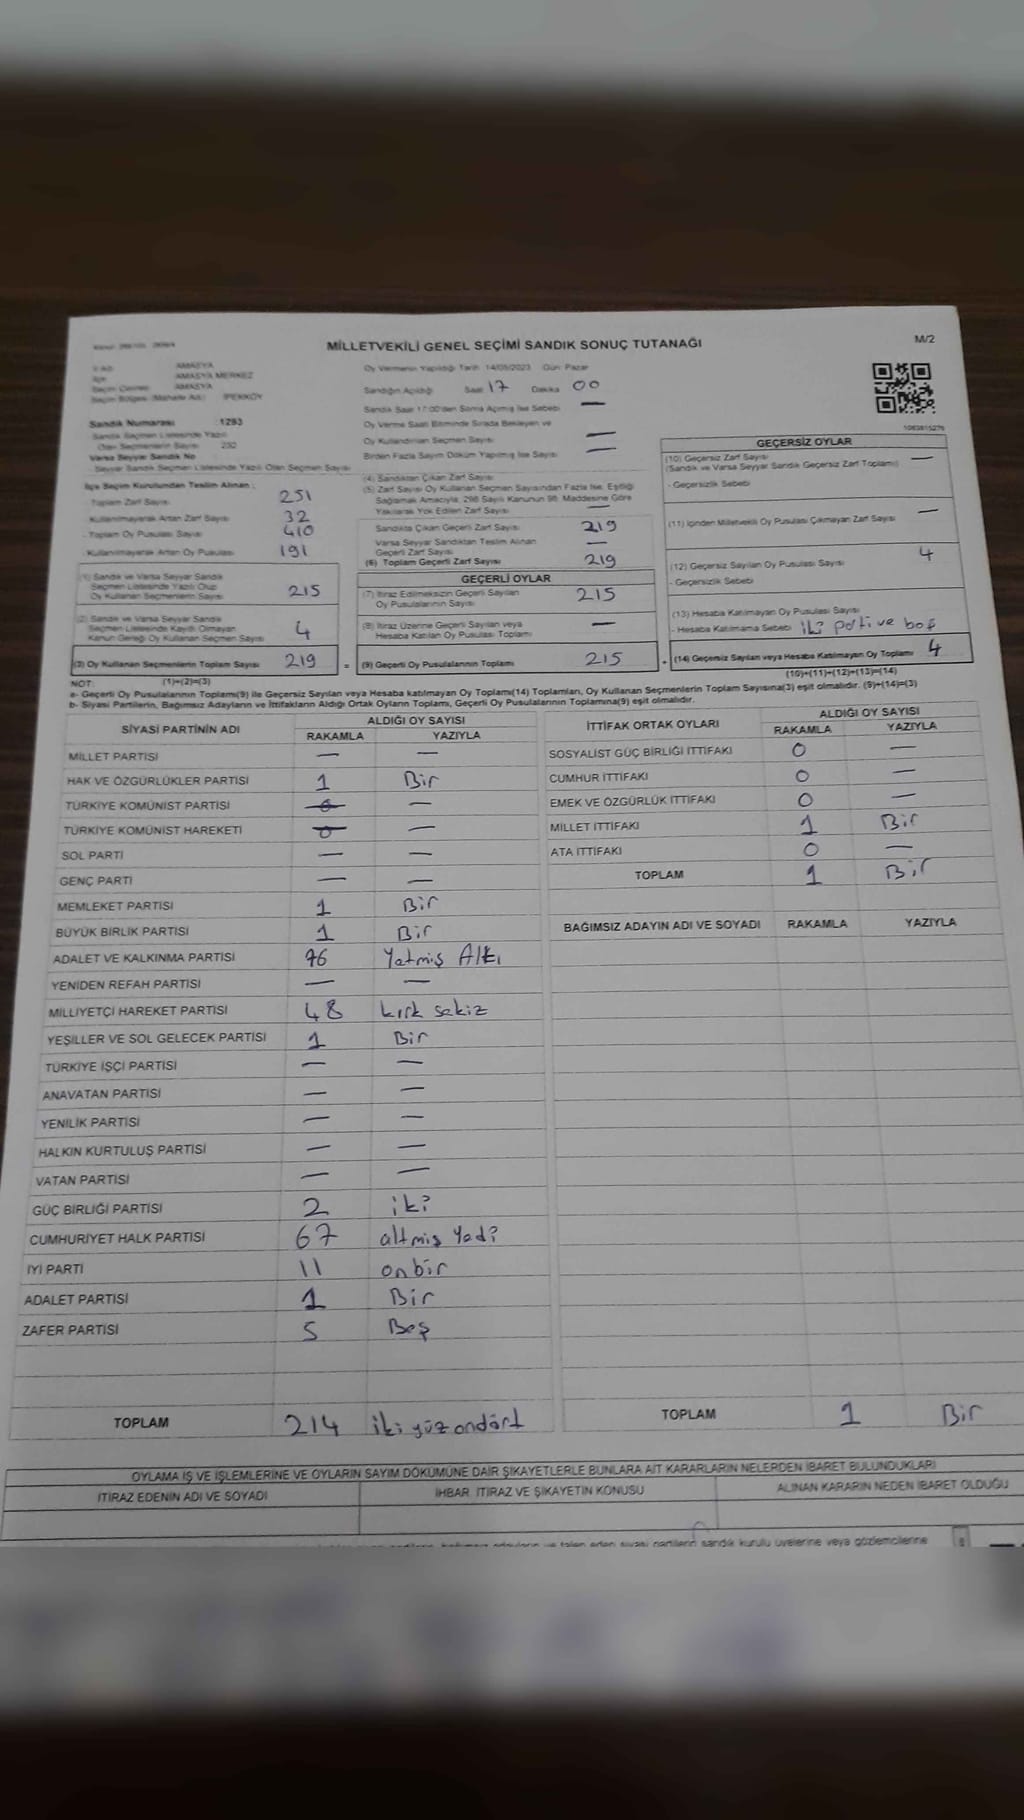 MİLLETVEKİLİ GENEL SEÇİMİ SANDIK SONUÇ TUTANAĞI
M/2
AMASYA
İlçe AMASYA MERKEZ
Seçim Çevresi AMASYA
Seçim Bölgesi (Mahalle Adı) İPEKKÖY
Sandık Numarası :1293
Sandık Seçmen Listesinde Yazılı
Olan Seçmenlerin Sayısı 232
Varsa Seyyar Sandık No
Seyyar Sandık Seçmen Listesinde Yazılı Olan Seçmen Sayısı
İlçe Seçim Kurulundan Teslim Alınan :
Toplam Zarf Sayısı 251
Kullanılmayarak Artan Zarf Sayısı 32
- Toplam Oy Pusulası Sayısı 410
- Kullanılmayarak Artan Oy Pusulası 191
(1) Sandık ve Varsa Seyyar Sandık
Seçmen Listesinde Yazılı Olup
Oy Kullanan Seçmenlerin Sayısı 215
(2) Sandık ve Varsa Seyyar Sandık
Seçmen Listesinde Kayıtlı Olmayan
Kanun Gereği Oy Kullanan Seçmen Sayısı 4
(3) Oy Kullanan Seçmenlerin Toplam Sayısı 219 =
Oy Vermenin Yapıldığı Tarih 14/05/2023 Gün Pazar
Sandığın Açıldığı Saat 17 Dakika 00
Sandık Saat 17:00'den Sonra Açılmış İse Sebebi —
Oy Verme Saati Bitiminde Sırada Bekleyen ve
Oy Kullandırılan Seçmen Sayısı —
Birden Fazla Sayım Döküm Yapılmış İse Sayısı —
(4) Sandıktan Çıkan Zarf Sayısı
(5) Zarf Sayısı Oy Kullanan Seçmen Sayısından Fazla İse, Eşitliği
Sağlamak Amacıyla, 298 Sayılı Kanunun 98. Maddesine Göre
Yakılarak Yok Edilen Zarf Sayısı —
Sandıkta Çıkan Geçerli Zarf Sayısı 219
Varsa Seyyar Sandıktan Teslim Alınan
Geçerli Zarf Sayısı —
(6) Toplam Geçerli Zarf Sayısı 219
GEÇERLİ OYLAR
(7) İtiraz Edilmeksizin Geçerli Sayılan
Oy Pusulalarının Sayısı 215
(8) İtiraz Üzerine Geçerli Sayılan veya
Hesaba Katılan Oy Pusulası Toplamı —
(9) Geçerli Oy Pusulalarının Toplamı 215 +
1083815276
GEÇERSİZ OYLAR
(10) Geçersiz Zarf Sayısı —
(Sandık ve Varsa Seyyar Sandık Geçersiz Zarf Toplamı)
- Geçersizlik Sebebi
(11) İçinden Milletvekili Oy Pusulası Çıkmayan Zarf Sayısı —
(12) Geçersiz Sayılan Oy Pusulası Sayısı 4
- Geçersizlik Sebebi
(13) Hesaba Katılmayan Oy Pusulası Sayısı
- Hesaba Katılmama Sebebi iki parti ve boş
(14) Geçersiz Sayılan veya Hesaba Katılmayan Oy Toplamı 4
NOT: (1)+(2)=(3)
(10)+(11)+(12)+(13)=(14)
a- Geçerli Oy Pusulalarının Toplamı(9) ile Geçersiz Sayılan veya Hesaba katılmayan Oy Toplamı(14) Toplamları, Oy Kullanan Seçmenlerin Toplam Sayısına(3) eşit olmalıdır. (9)+(14)=(3)
b- Siyasi Partilerin, Bağımsız Adayların ve İttifakların Aldığı Ortak Oyların Toplamı, Geçerli Oy Pusulalarının Toplamına(9) eşit olmalıdır.
SİYASİ PARTİNİN ADI ALDIĞI OY SAYISI
RAKAMLA YAZIYLA
MİLLET PARTİSİ — —
HAK VE ÖZGÜRLÜKLER PARTİSİ 1 Bir
TÜRKİYE KOMÜNİST PARTİSİ 0 —
TÜRKİYE KOMÜNİST HAREKETİ 0 —
SOL PARTİ — —
GENÇ PARTİ — —
MEMLEKET PARTİSİ 1 Bir
BÜYÜK BİRLİK PARTİSİ 1 Bir
ADALET VE KALKINMA PARTİSİ 76 Yetmiş Altı
YENİDEN REFAH PARTİSİ — —
MİLLİYETÇİ HAREKET PARTİSİ 48 kırk sekiz
YEŞİLLER VE SOL GELECEK PARTİSİ 1 Bir
TÜRKİYE İŞÇİ PARTİSİ — —
ANAVATAN PARTİSİ — —
YENİLİK PARTİSİ — —
HALKIN KURTULUŞ PARTİSİ — —
VATAN PARTİSİ — —
GÜÇ BİRLİĞİ PARTİSİ 2 iki
CUMHURİYET HALK PARTİSİ 67 altmış Yedi
İYİ PARTİ 11 onbir
ADALET PARTİSİ 1 Bir
ZAFER PARTİSİ 5 Beş
TOPLAM 214 iki yüz ondört
İTTİFAK ORTAK OYLARI ALDIĞI OY SAYISI
RAKAMLA YAZIYLA
SOSYALİST GÜÇ BİRLİĞİ İTTİFAKI 0 —
CUMHUR İTTİFAKI 0 —
EMEK VE ÖZGÜRLÜK İTTİFAKI 0 —
MİLLET İTTİFAKI 1 Bir
ATA İTTİFAKI 0 —
TOPLAM 1 Bir
BAĞIMSIZ ADAYIN ADI VE SOYADI RAKAMLA YAZIYLA
TOPLAM 1 Bir
OYLAMA İŞ VE İŞLEMLERİNE VE OYLARIN SAYIM DÖKÜMÜNE DAİR ŞİKAYETLERLE BUNLARA AİT KARARLARIN NELERDEN İBARET BULUNDUKLARI
İTİRAZ EDENİN ADI VE SOYADI İHBAR, İTİRAZ VE ŞİKAYETİN KONUSU ALINAN KARARIN NEDEN İBARET OLDUĞU
siyasi partilerin sandık kurulu üyelerine veya gözlemcilerine